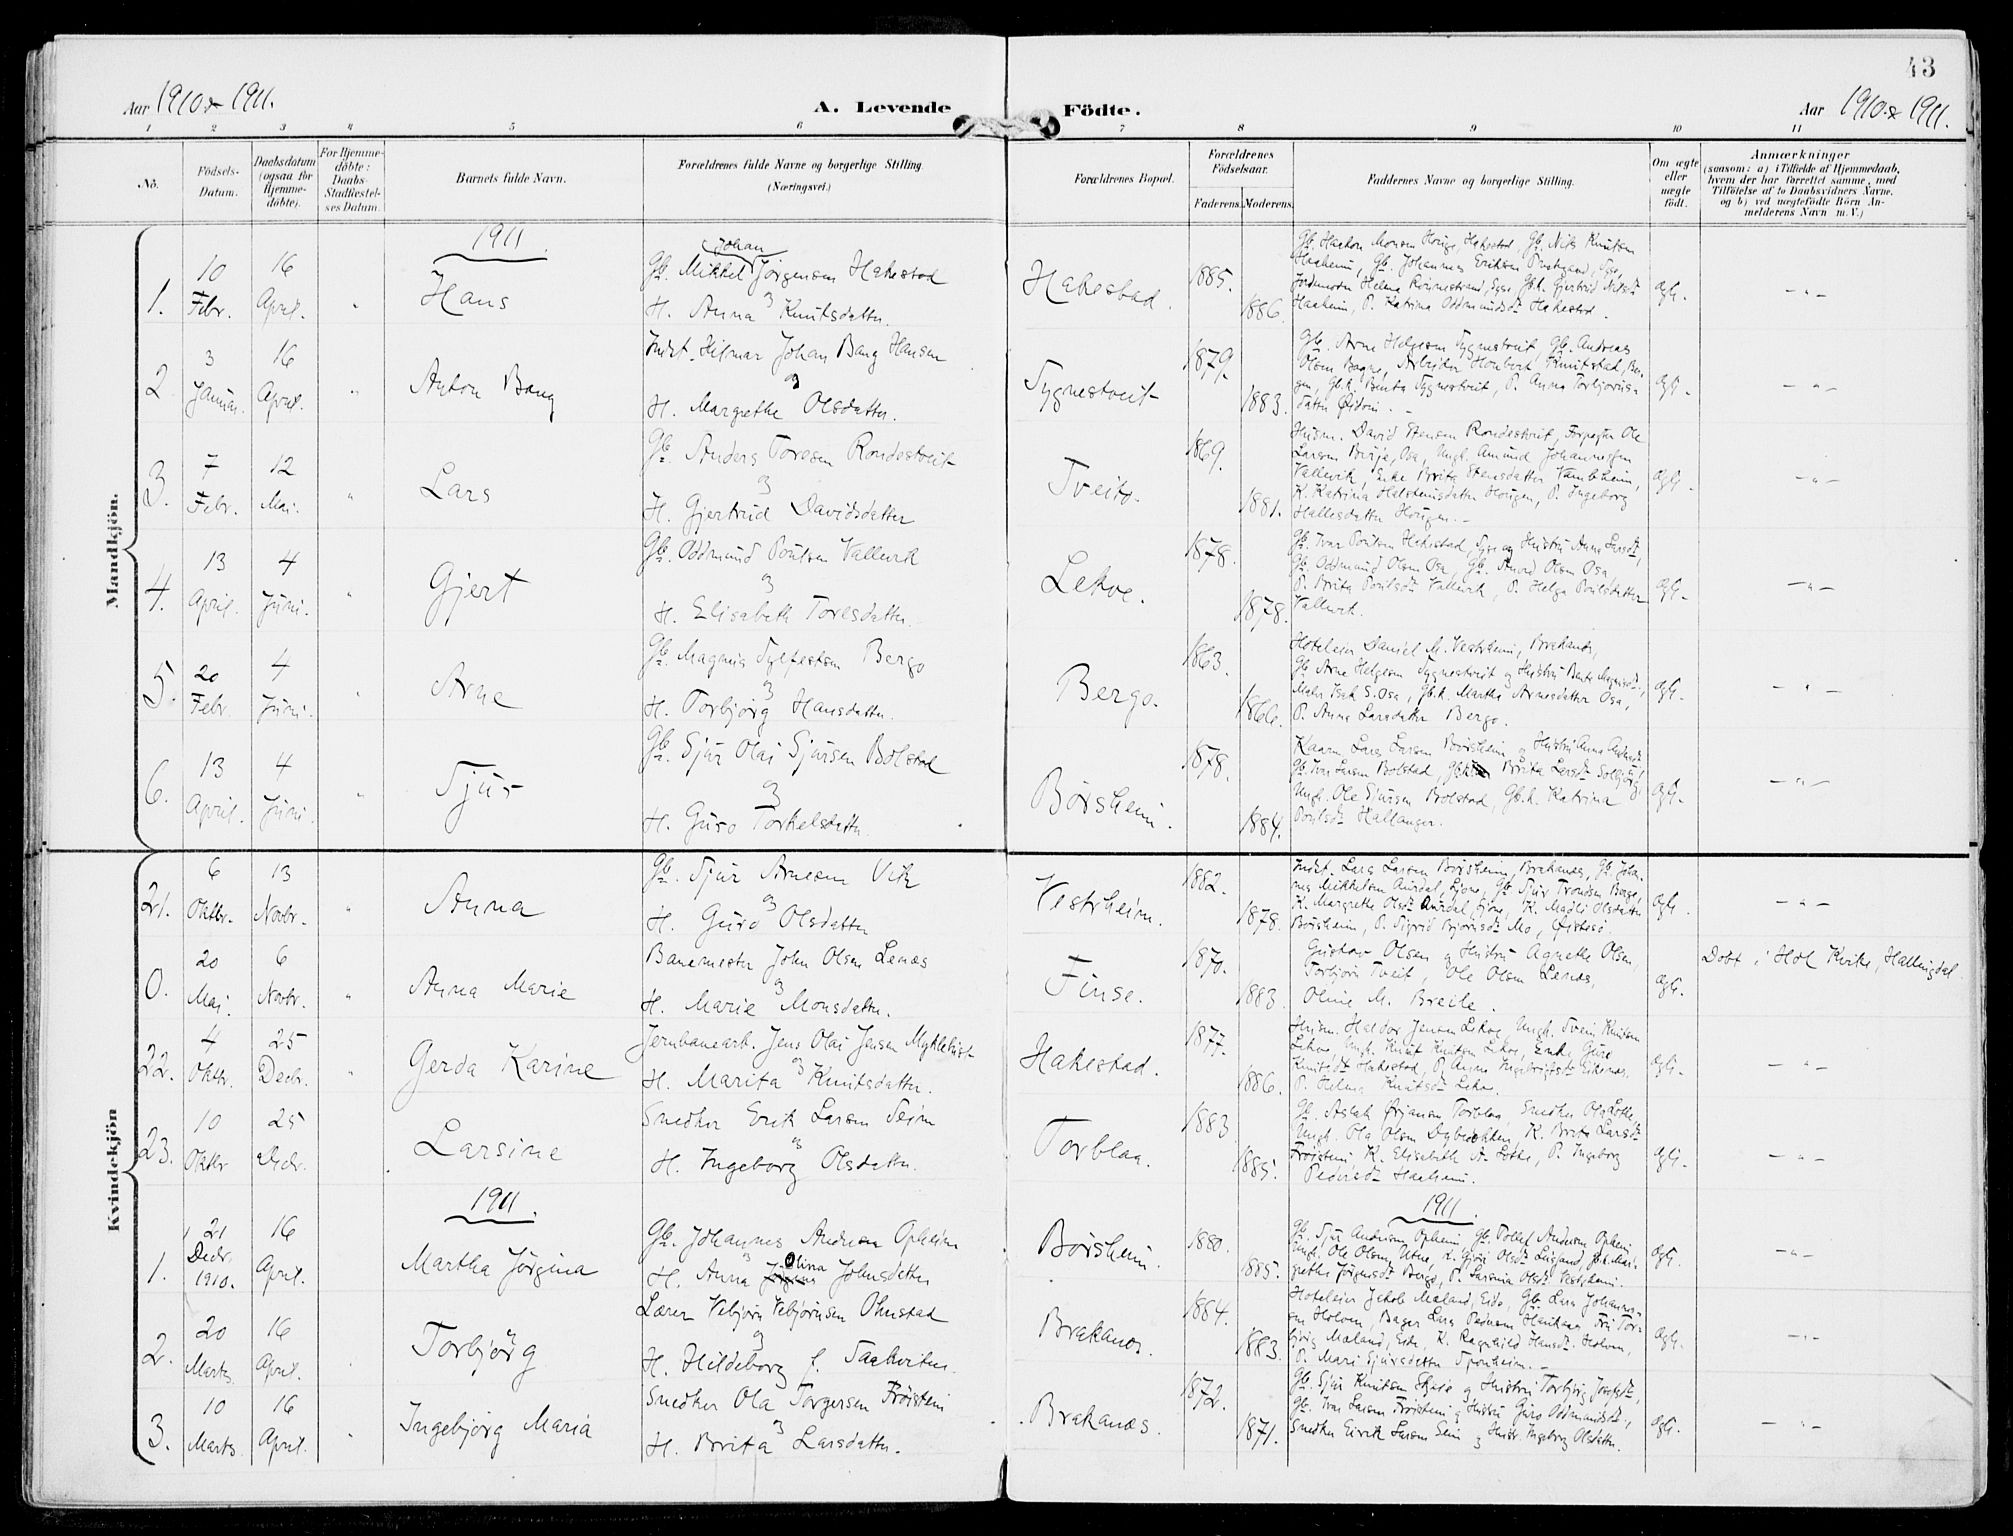 43
Aar 1910 & 1911.
A. Levende Födte.
Aar 1910 & 1911.
1 2 3 4 5 6 7 8 9 10 11
No.
Födsels-Datum.
Daabsdatum (ogsaa for Hjemme-döbte).
For Hjemme-döbte: Daabs-Stadfæstel-ses Datum.
Barnets fulde Navn.
Forældrenes fulde Navne og borgerlige Stilling.
(Næringsvei.)
Forældrenes Bopæl.
Forældrenes Födselsaar.
Faderens. Moderens.
Faddernes Navne og borgerlige Stilling.
Om ægte eller uægte födt.
Anmærkninger
(saasom: a) i Tilfælde af Hjemmedaab, hvem der har forrettet samme, med Tilföielse af to Daabsvidners Navne, og b) ved uægtefödte Börn Anmelderens Navn m. V.)
Mandkjön.
1911.
1. 10 Febr. 16 April. " Hans
Gb. Mikkel Johan Jørgensen Hakestad
og
H. Anna Knutsdatter.
Hakestad. 1885. 1886.
Gb. Haakon Monsen Houge, Hakestad, Gb. Nils Knutsen
Haaheim, Gb. Johannes Eriksen
Jordmoder Helena
Haaheim, P. Katrina Oddmundsdt. Hakestad.
ægte. - " -
2. 3 Januar. 16 April. " Anton Bang
Indst. Hilmar Johan Bang Hansen
og
H. Margrethe Olsdatter.
Tygnestveit 1879. 1883.
Gb. Arne Helgesen Tygnestveit, Gb. Andreas
Olsen Bagne, Arbeider
Gbk. Brita Tygnestveit, P. Anna Torbjørns-
datter
ægte. - " -
3. 7 Febr. 12 Mai. " Lars
Gb. Anders Toresen Rondestveit
og
H. Gjertrud Davidsdatter
Tveito. 1869. 1881.
Husm. David Stensen Rondestveit, Forpagter Ole
Larsen Osa, Ungk. Amund Johannessen
Vallevik, Enke Brita Stensdatter
K. Katrina Halsteinsdatter Hougen, P. Ingeborg
Hallesdatter Hougen.
ægte. - " -
4. 13 April. 4 Juni. " Gjert
Gb. Oddmund Poulsen Vallevik
og
H. Elisabeth Toresdatter.
Lekve. 1878. 1878.
Gb. Ivar Poulsen Hakestad, og Hustru Anna Larsdt.,
Gb. Oddmund Olsen Osa, Gb. Olsen Osa,
P. Brita Poulsdt. Vallevik, P. Helga Poulsdatter
Vallevik.
ægte. - " -
5. 20 Febr. 4 Juni. " Arne
Gb. Magnus Sylfestsen Bergo
og
H. Torbjørg Hansdatter.
Bergo. 1863. 1866.
Hoteleier Daniel M. Vestrheim, Brakanæs,
Gb. Arne Helgesen Tygnestveit og Hustru
Maler Isak S. Osa, Gbk. Martha Arnesdatter Osa,
P. Anna Larsdatter Bergo.
ægte. - " -
6. 13 April. 4 Juni. " Sjur
Gb. Sjur Olai Sjursen Bolstad
og
H. Guro Torkelsdatter.
Børsheim. 1878. 1884.
Kaarm. Lars Larsen Børsheim og Hustru Anna
Gb. Ivar Larsen Bolstad, Brita Larsdt.
Ungk. Ole Sjursen Bolstad, Gbk. Katrina
Poulsdt. Hallanger.
ægte. - " -
Kvindekjön
21. 6 Oktbr. 13 Novbr. " Anna
Gb. Sjur Arnesen Vik
og
H. Guro Olsdatter
Vestrheim. 1882. 1878.
Indst. Lars Larsen Børsheim, Brakanæs, Gb. Johan-
nes Mikkelsen Gb. Sjur Trondsen Bergo,
K. Margrethe Olsdt. K. Madli Olsdatter
Børsheim, P. Sigrid Bjørnsdt. Mo, Øistesø.
ægte. - " -
0. 20 Mai. 6 Novbr. " Anna Marie
Banemester John Olsen Lenæs
og
H. Marie Monsdatter.
Finse. 1870. 1883.
Gustav Olsen og Hustru Agnethe Olsen,
Torbjørn Tveit, Ole Olsen Lenæs,
Oline M. Breile.
ægte. Døbt i Hol Kirke, Hallingdal.
22. 4 Oktbr. 25 Decbr. " Gerda Karine
Jernbanearb. Jens Olai Jensen Myklebust
og
H. Marita Knutsdatter.
Hakestad. 1877. 1886.
Husm. Haldor Jensen Lekve, Ungk. Svein Knutsen
Lekve, Ungk. Knut Knutsen Lekve, Enke Guro
Knutsdt. Hakestad, P. Anna Ingebrigtsdt.
P. Helena Knutsdt. Lekve.
ægte. - " -
23. 10 Oktbr 25 Decbr. Larsine
Snedker Erik Larsen Seim
og
H. Ingeborg Olsdatter.
Torblaa. 1883 1885.
Gb. Aslak Ørjansen Torblaa, Snedker Olai Lothe,
Ungk. Ola Olsen K. Brita Larsdt.
Frøistein, K. Elisabeth A. Lothe, P. Ingeborg
Pedersdt. Haaheim.
ægte. - " -
1911. 1911.
1. 21 Decbr. 1910. 16 April. Martha Jørgina
Gb. Johannes Andersen Opheim
og
H. Anna Olina Johnsdatter
Børsheim. 1880. 1885.
Gb. Sjur Andersen Opheim, Gb. Tollef Andersen Opheim,
Ungk. Ole Olsen Utne, Gbk. Mar-
grethe Jørgensdt. Bergo, P. Larsina Olsdt. Vestrheim.
ægte. - " -
2. 20 Marts. 16 April. Torbjørg
Lærer Vebjørn Vebjørnsen Ohnstad
og
H. Hildeborg f. Saakvitne.
Brakanæs. 1884. 1883.
Hoteleier Jakob Maland, Eide, Gb. Lars Johannes-
sen Holven, Bager Lars Fru Tor-
bjørg Maland, Eide, K. Ragnhild Hansdt. Holven,
P. Mari Sjursdatter Sponheim.
ægte. - " -
3. 10 Marts. 16 April. " Ingebjørg Maria
Snedker Ola Torgersen Frøistein
og
H. Brita Larsdatter.
Brakanæs. 1872. 1871.
Gb. Sjur Knutsen Skeie og Hustru Torbjørg
Gb. Ivar Larsen Frøistein og Hustru Guro Oddmundsdt.,
Snedker Eirik Larsen Seim og Hustr. Ingeborg Olsdatter.
ægte. - " -